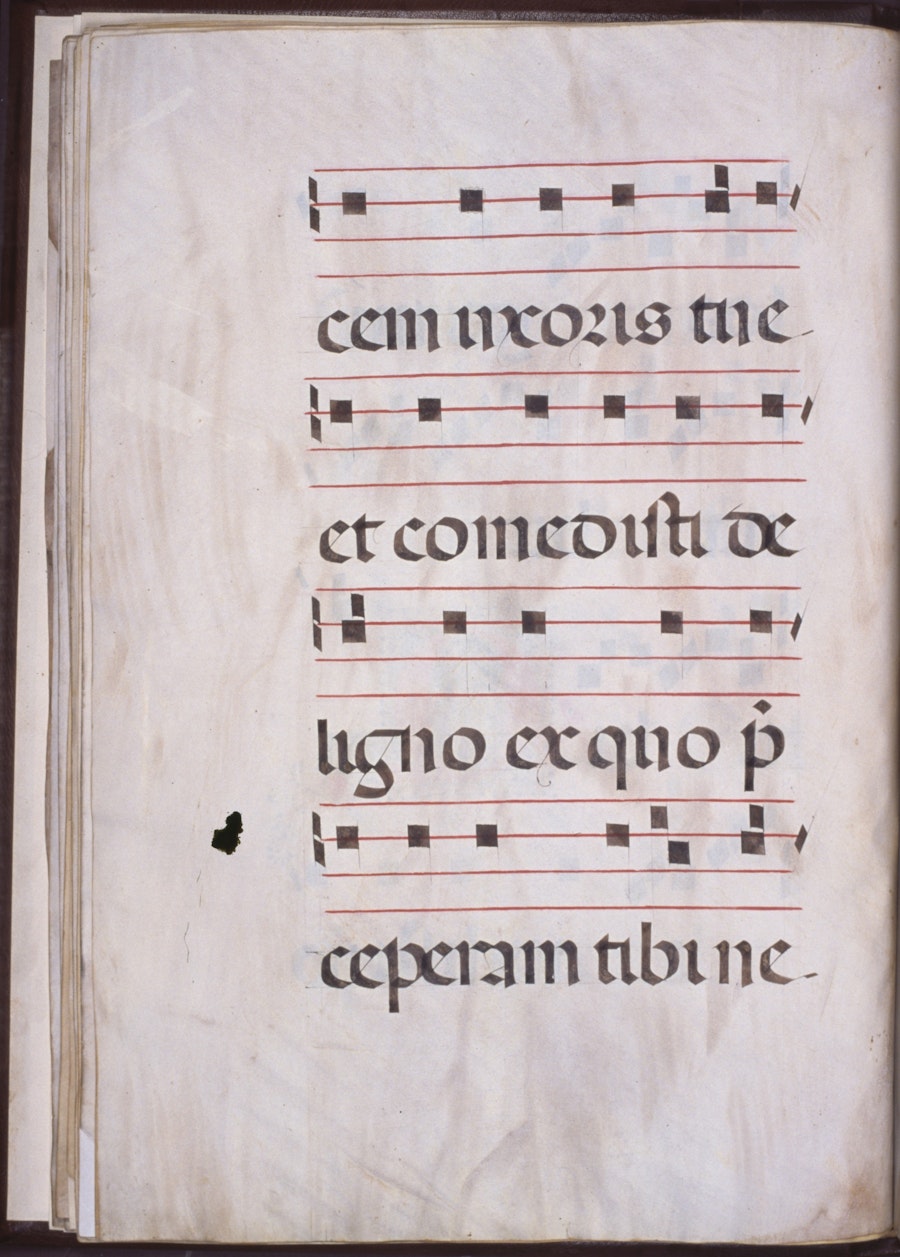 cem uxoris tue
et comedisti de
ligno ex quo p̄
ceperam tibi ne